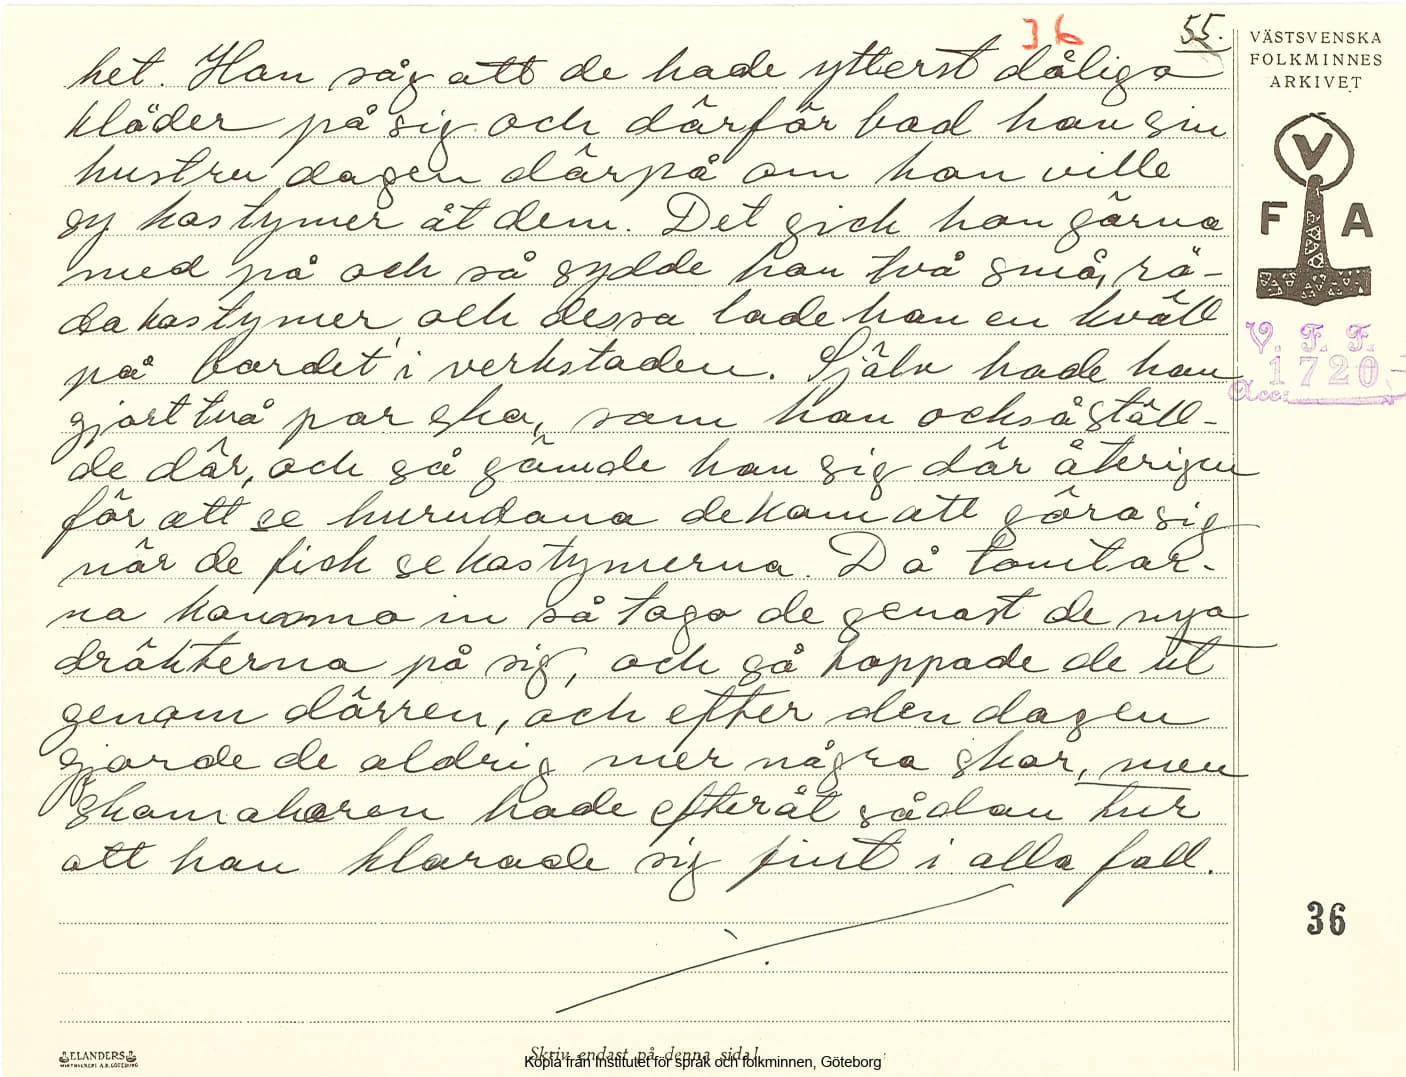 36
55.
het. Han såg att de hade ytterst dåliga
kläder på sig och därför bad han sin
hustru dagen därpå om hon ville
sy kostymer åt dem. Det gick hon gärna
med på och så sydde hon två små, rö-
da kostymer och dessa lade han en kväll
på bordet i verkstaden. Själv hade han
gjort två par skor, som han också ställ-
de där, och så gömde han sig där återigen
för att se hurudana de kom att göra sig
när de fick se kostymerna. Då tomtar-
na kommo in så togo de genast de nya
dräkterna på sig, och så hoppade de ut
genom dörren, och efter den dagen
gjorde de aldrig mer några skor, men
skomakaren hade efteråt sådan tur
att han klarade sig fint i alla fall.
VÄSTSVENSKA
FOLKMINNES
ARKIVET
V
F A
V. F. F.
1720
Acc:
36
ELANDERS
Skriv endast på denna sida!
Kopia från Institutet för språk och folkminnen, Göteborg